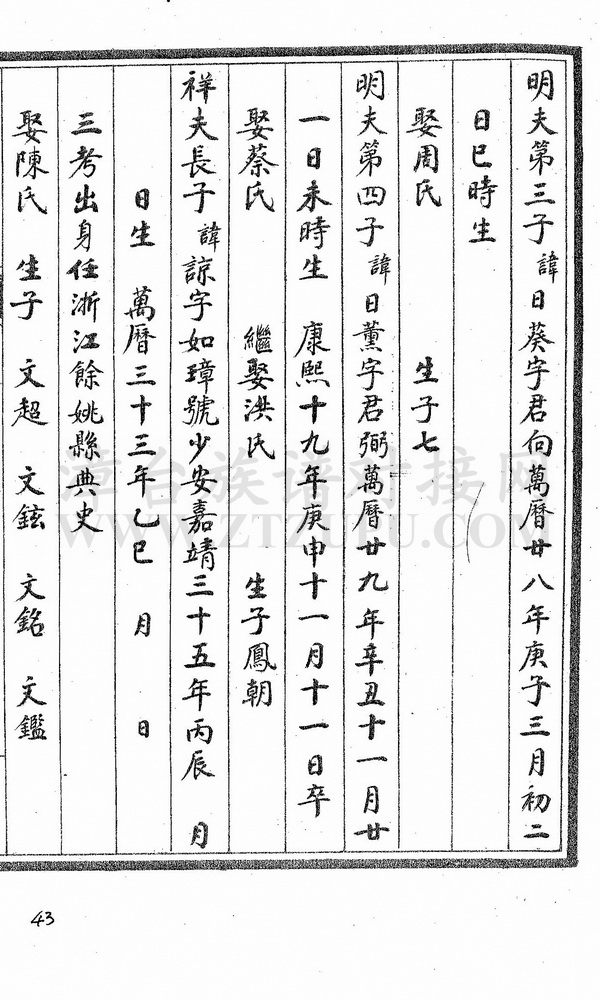 明夫第三子 諱日葵字君向萬曆廿八年庚子三月初二
日巳時生
娶周氏 生子七
明夫第四子 諱日薰字君弼萬曆廿九年辛丑十一月廿
一日未時生 康熙十九年庚申十一月十一日卒
娶蔡氏 繼娶洪氏 生子鳳朝
祥夫長子 諱諒字如璋號少安嘉靖三十五年丙辰 月
日生 萬曆三十三年乙巳 月 日
三考出身任浙江餘姚縣典史
娶陳氏 生子 文超 文鉉 文銘 文鑑
漳台族谱对接网
WWW.ZTZUPU.COM
43